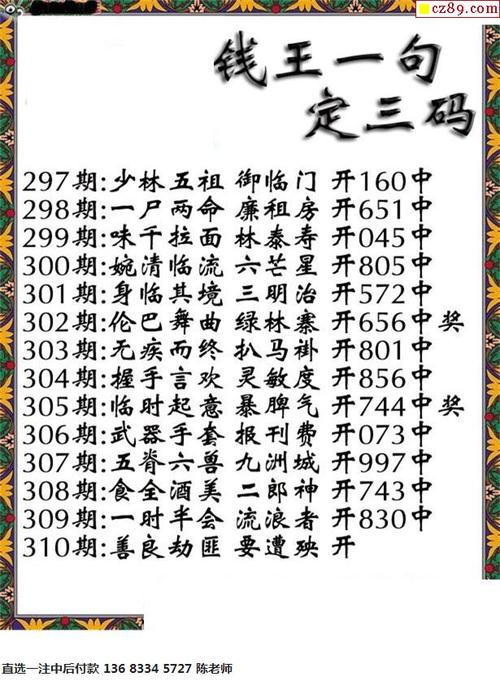 cz89.com
钱王一句
定三码
297期:少林五祖 御临门 开160中
298期:一尸两命 廉租房 开651中
299期:味千拉面 林泰寿 开045中
300期:婉清临流 六芒星 开805中
301期:身临其境 三明治 开572中
302期:伦巴舞曲 绿林寨 开656中奖
303期:无疾而终 扒马褂 开801中
304期:握手言欢 灵敏度 开856中
305期:临时起意 暴脾气 开744中奖
306期:武器手套 报刊费 开073中
307期:五脊六兽 九洲城 开997中
308期:食全酒美 二郎神 开743中
309期:一时半会 流浪者 开830中
310期:善良劫匪 要遭殃 开
直选一注中后付款 136 8334 5727 陈老师